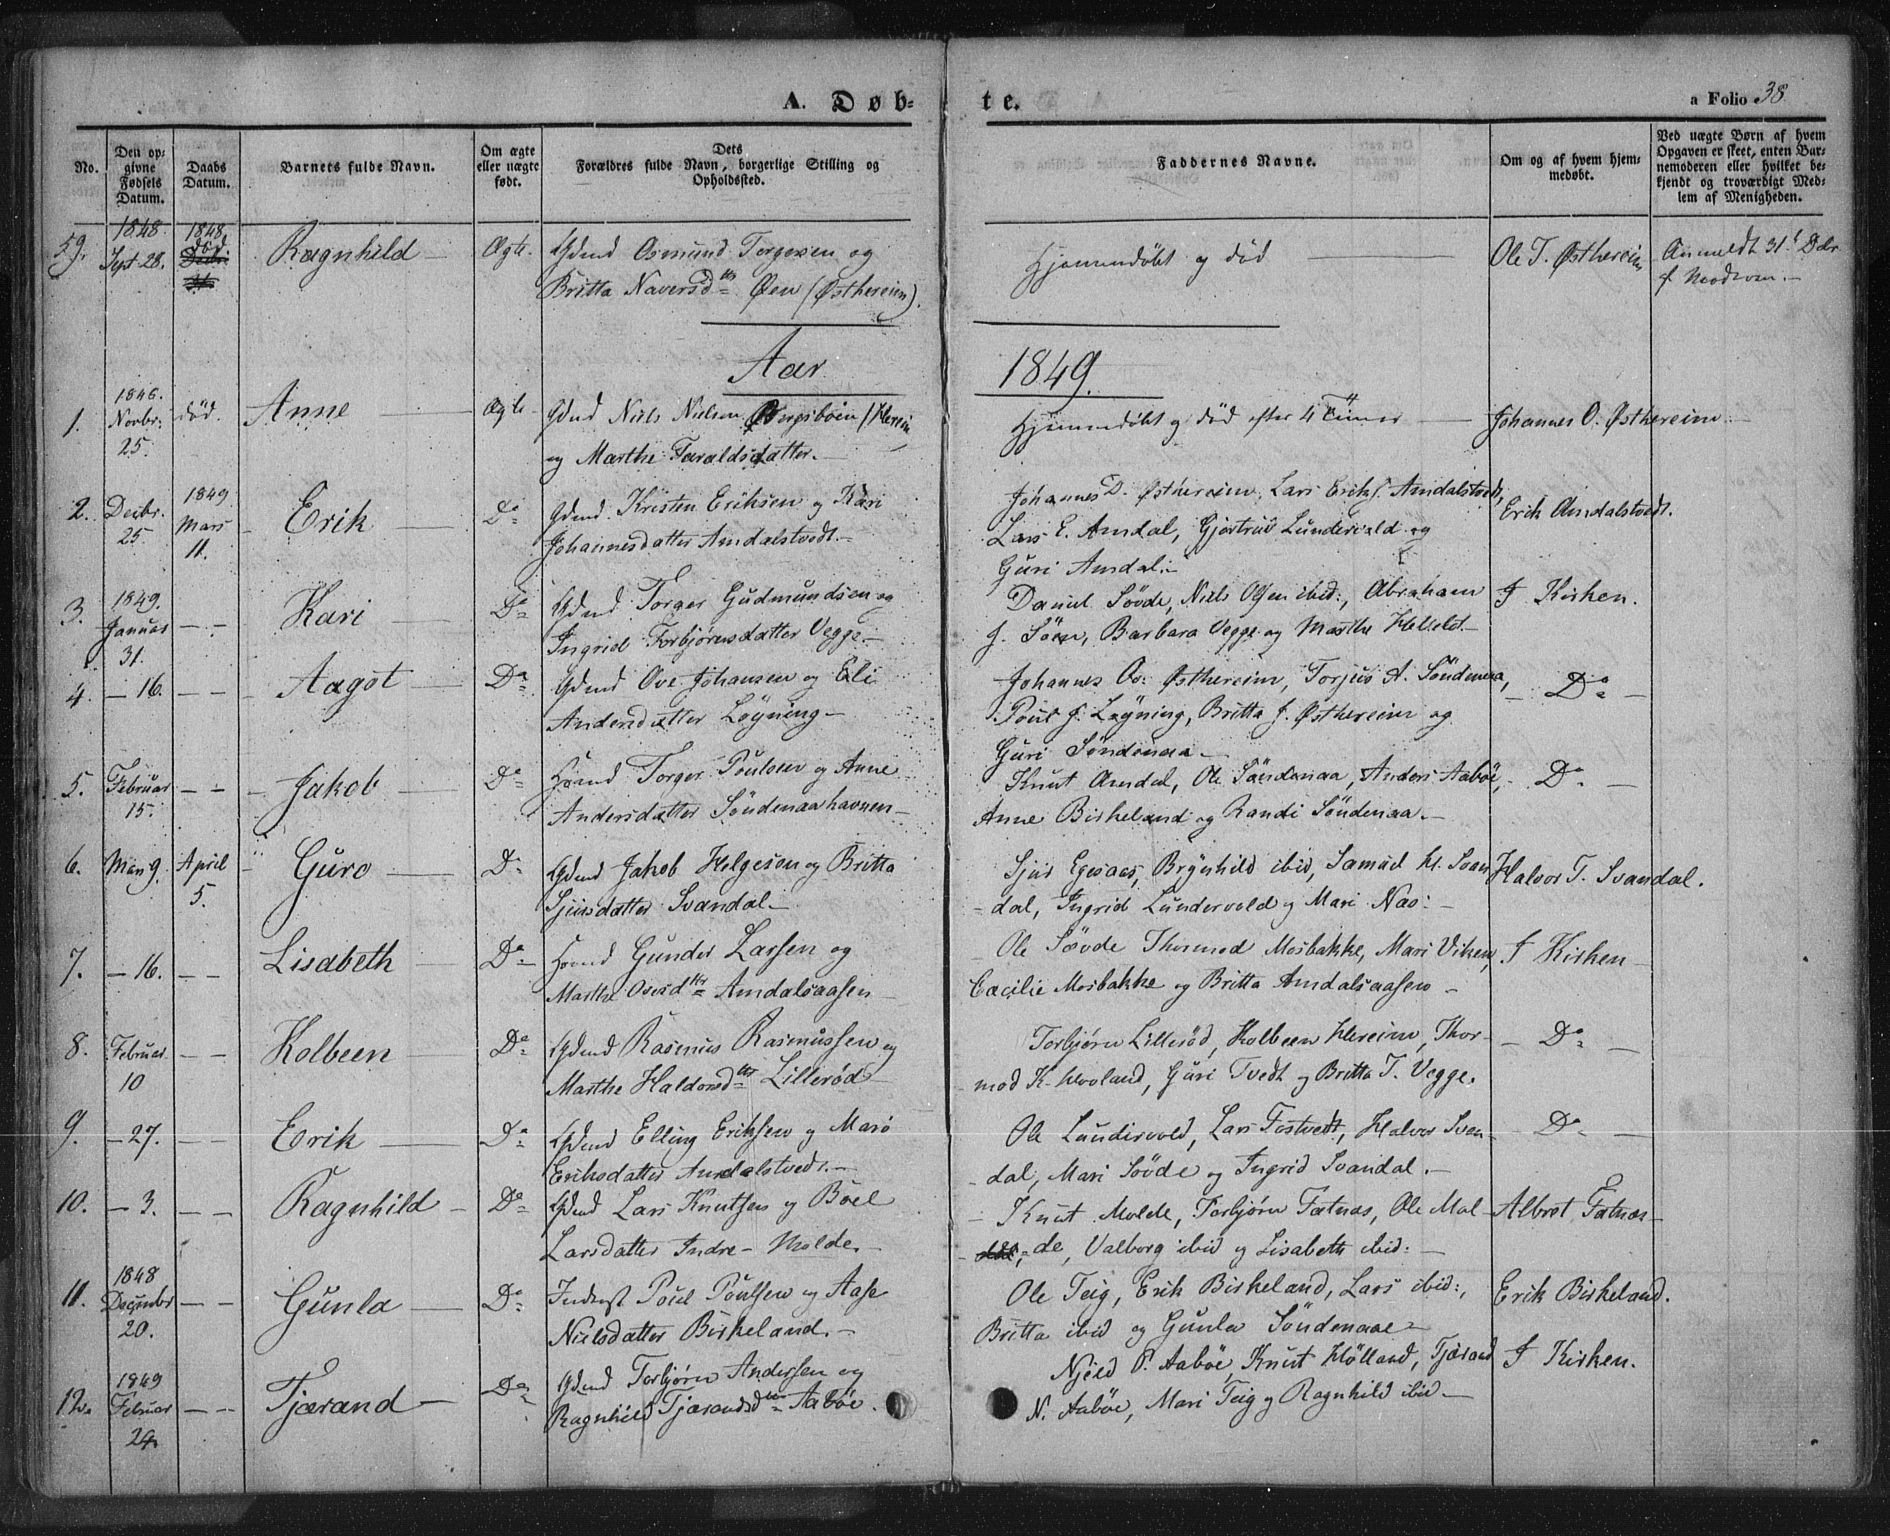 A. Døb-
te.
a Folio 38
No.
Den op-
givne
Fødsels
Datum.
Daabs
Datum.
Barnets fulde Navn.
Om ægte
eller uægte
født.
Dets
Forældres fulde Navn, borgerlige Stilling og
Opholdssted.
Faddernes Navne.
Om og af hvem hjem-
medøbt.
Ved uægte Børn af hvem
Opgaven er skeet, enten Bar-
nemoderen eller hvilket be-
kjendt og troværdigt Med-
lem af Menigheden.
59. 1848 Sept 28. 1848 død Ragnhild — Ægte Gdmd Osmund Torgersen og
Britta Naversdtr Øen (Østhereim).
Hjemmedøbt og død — Ole T. Østhereim Anmeldt 31t Decbr
f Modren.-
Aar
1849.
1. Novbr. 25. død. Anne — Ægte Gdmd Niels Nielsen
og Marthe Taraldsdatter.—
Hjemmedøbt og død efter 4 Timer — Johannes O. Østhereim.
2. Decbr. 25 1849 Mars 11. Erik — Do Gdmd Kristen Eriksen og Kari
Johannesdatter Amdalstvedt.—
Johannes O. Østhereim, Lars Erikf. Amdalstvedt,
Lars E. Amdal, Gjertrud Lundevold og
Guri Amdal.—
Erik Amdalstvedt.
3. 1849. Januar 31. — Kari — Do Gdmd Torger Gudmundsen og
Ingrid Torbjørnsdatter Vegge.—
Daniel Søvde, Niels Olsen ibid:, Abraham
J. Söen, Barbara Vegge og Marthe Helleld.—
I Kirken.
4. — 16. — Aagot — Do Gdmd Ove Johansen og Eli
Andersdatter Løyning—
Johannes Ov. Østhereim, Torjus A. Söndenaa,
Poul J. Løyning, Britta J. Østhereim og
Guri Söndenaa.—
— Do —
5. Februar 15. — Jakob — Do Hmnd Torger Poulsen og Anne
Andersdatter Söndenaahavnen—
Knut Amdal, Ole Söndenaa, Anders Aabøe,
Anne Birkeland og Randi Söndenaa.—
— Do —
6. Mars 9. April 5. Guro — Do Gdmd Jakob Helgesen og Britta
Sjursdatter Svandal.—
Sjur Egesaas, Brynhild ibid, Samuel H. Svan-
dal, Ingrid Lundevold og Mari Nas:—
Halvor T. Svandal.
7. — 16. — Lisabeth — Do Hmnd Gunder Larsen og
Marthe Ovesdtr Amdalsaasen—
Ole Søvde Thormod Mosbakke, Mari Viken,
Cæcilie Mosbakke og Britta Amdalsaasen—
I Kirken—
8. Februar 10 — Kolbeen Do Gdmd Rasmus Rasmussen og
Marthe Haldorsdtr Lillerød—
Torbjørn Lillerød, Kolbeen Hereim, Thor-
mod K. Hovland, Guri Tvedt og Britta T. Vegge.
— Do —
9. — 27. — Erik — Do Gdmd Elling Eriksen og Mari
Eriksdatter Amdalstvedt.—
Ole Lundevold, Lars Tostvedt, Halvor Svan-
dal, Mari Søvde og Ingrid Svandal.—
Do —
10. — 3. — Ragnhild — Do Gdmd Lars Knutsen og Böel
Larsdatter Indre-Molde.—
Knut Molde, Torbjørn Fatnas, Ole Mol-
de, Valborg ibid og Lisabeth ibid:—
Albret Fatnas—
11. 1848 December 20. — Gunla — Do Inderst Poul Poulsen og Aase
Nielsdatter Birkeland.—
Ole Teig, Erik Birkeland, Lars ibid:,
Britta ibid og Gunla Söndenaa—
Erik Birkeland.
12. 1849 Februar 24. — Tjærand — Do Gdmd Torbjørn Andersen og
Ragnhild Tjærandsdtr Aabøe.
Njeld P. Aabøe, Knut Hölland, Tjærand
N. Aabøe, Mari Teig og Ragnhild ibid—
I Kirken.